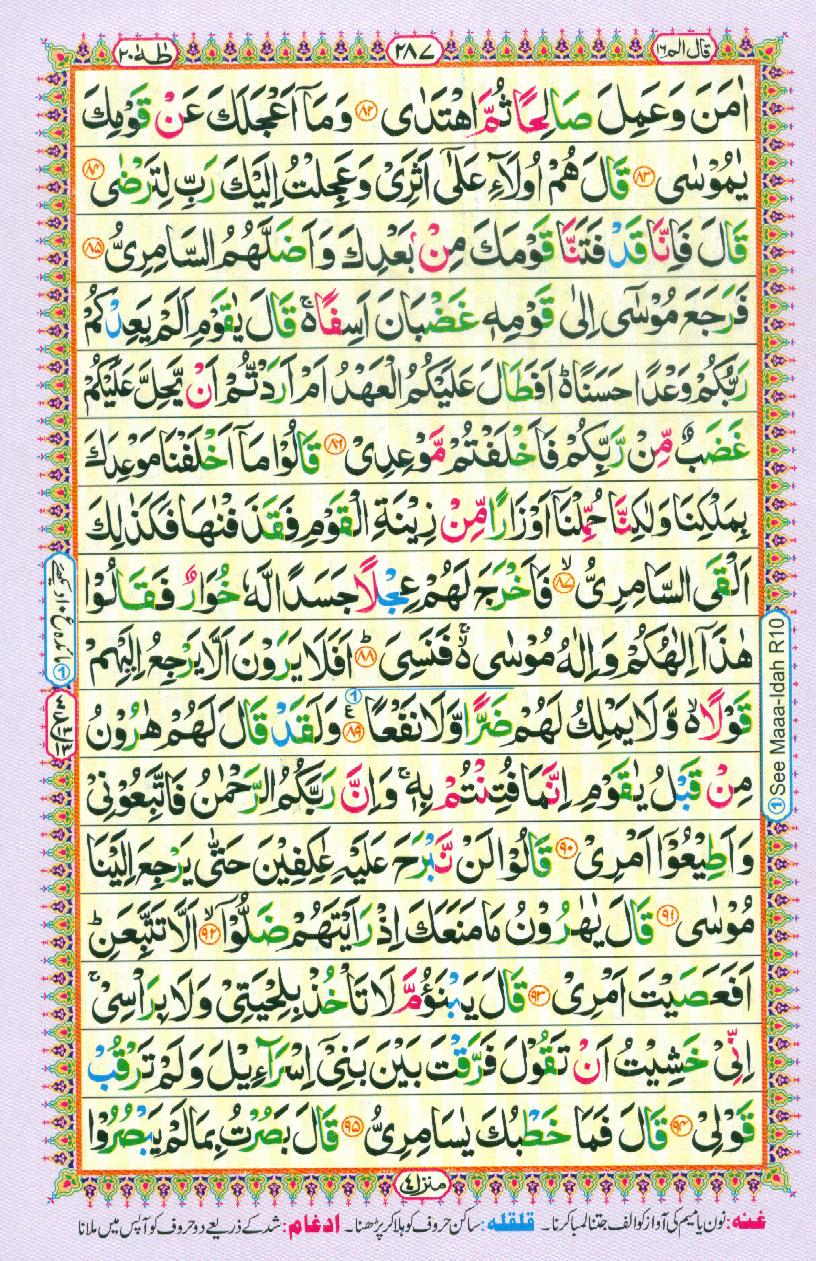 قال الم ١٦
٢٨٧
طٰهٰ ٢٠
اٰمَنَ وَعَمِلَ صَالِحًا ثُمَّ اهْتَدٰى ﴿٨٢﴾ وَمَاۤ اَعْجَلَكَ عَنْ قَوْمِكَ
يٰمُوْسٰى ﴿٨٣﴾ قَالَ هُمْ اُولَآءِ عَلٰٓى اَثَرِىْ وَعَجِلْتُ اِلَيْكَ رَبِّ لِتَرْضٰى ﴿٨٤﴾
قَالَ فَاِنَّا قَدْ فَتَنَّا قَوْمَكَ مِنْۢ بَعْدِكَ وَاَضَلَّهُمُ السَّامِرِىُّ ﴿٨٥﴾
فَرَجَعَ مُوْسٰۤى اِلٰى قَوْمِهٖ غَضْبَانَ اَسِفًا ۚ قَالَ يٰقَوْمِ اَلَمْ يَعِدْكُمْ
رَبُّكُمْ وَعْدًا حَسَنًا ۬ؕ اَفَطَالَ عَلَيْكُمُ الْعَهْدُ اَمْ اَرَدْتُّمْ اَنْ يَّحِلَّ عَلَيْكُمْ
غَضَبٌ مِّنْ رَّبِّكُمْ فَاَخْلَفْتُمْ مَّوْعِدِىْ ﴿٨٦﴾ قَالُوْا مَاۤ اَخْلَفْنَا مَوْعِدَكَ
بِمَلْكِنَا وَلٰكِنَّا حُمِّلْنَاۤ اَوْزَارًا مِّنْ زِيْنَةِ الْقَوْمِ فَقَذَفْنٰهَا فَكَذٰلِكَ
اَلْقَى السَّامِرِىُّ ۙ﴿٨٧﴾ فَاَخْرَجَ لَهُمْ عِجْلًا جَسَدًا لَّهٗ خُوَارٌ فَقَالُوْا
هٰذَاۤ اِلٰهُكُمْ وَاِلٰهُ مُوْسٰى ۬ فَنَسِىَ ؕ﴿٨٨﴾ اَفَلَا يَرَوْنَ اَلَّا يَرْجِعُ اِلَيْهِمْ
قَوْلًا ۬ۙ وَّلَا يَمْلِكُ لَهُمْ ضَرًّا وَّلَا نَفْعًا ﴿٨٩﴾ ① وَلَقَدْ قَالَ لَهُمْ هٰرُوْنُ
مِنْ قَبْلُ يٰقَوْمِ اِنَّمَا فُتِنْتُمْ بِهٖ ۚ وَاِنَّ رَبَّكُمُ الرَّحْمٰنُ فَاتَّبِعُوْنِىْ
وَاَطِيْعُوْۤا اَمْرِىْ ﴿٩٠﴾ قَالُوْا لَنْ نَّبْرَحَ عَلَيْهِ عٰكِفِيْنَ حَتّٰى يَرْجِعَ اِلَيْنَا
مُوْسٰى ﴿٩١﴾ قَالَ يٰهٰرُوْنُ مَا مَنَعَكَ اِذْ رَاَيْتَهُمْ ضَلُّوْۤا ۙ﴿٩٢﴾ اَلَّا تَتَّبِعَنِ ؕ
اَفَعَصَيْتَ اَمْرِىْ ﴿٩٣﴾ قَالَ يَبْنَؤُمَّ لَا تَاْخُذْ بِلِحْيَتِىْ وَلَا بِرَاْسِىْ ۚ
اِنِّىْ خَشِيْتُ اَنْ تَقُوْلَ فَرَّقْتَ بَيْنَ بَنِىْۤ اِسْرَآءِيْلَ وَلَمْ تَرْقُبْ
قَوْلِىْ ﴿٩٤﴾ قَالَ فَمَا خَطْبُكَ يٰسَامِرِىُّ ﴿٩٥﴾ قَالَ بَصُرْتُ بِمَا لَمْ يَبْصُرُوْا
① See Maaa-Idah R10
منزل ٤
غنه: نون یا میم کی آواز کو الف جتنا لمبا کرنا۔ قلقله: ساکن حروف کو ہلا کر پڑھنا۔ ادغام: شد کے ذریعے دو حروف کو آپس میں ملانا